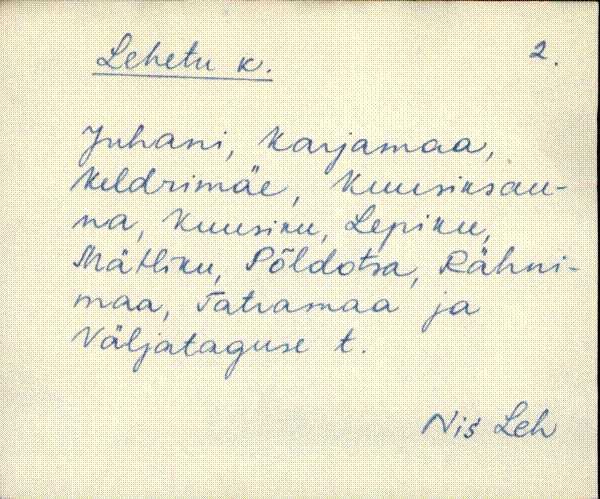 Lehetu k. 2.
Juhani, Karjamaa,
Keldrimäe, Kuusiksau-
na, Kuusiku, Lepiku,
Mätliku, Põldotsa, Rähni-
maa, Tatramaa ja
Väljataguse t.
Nis Leh